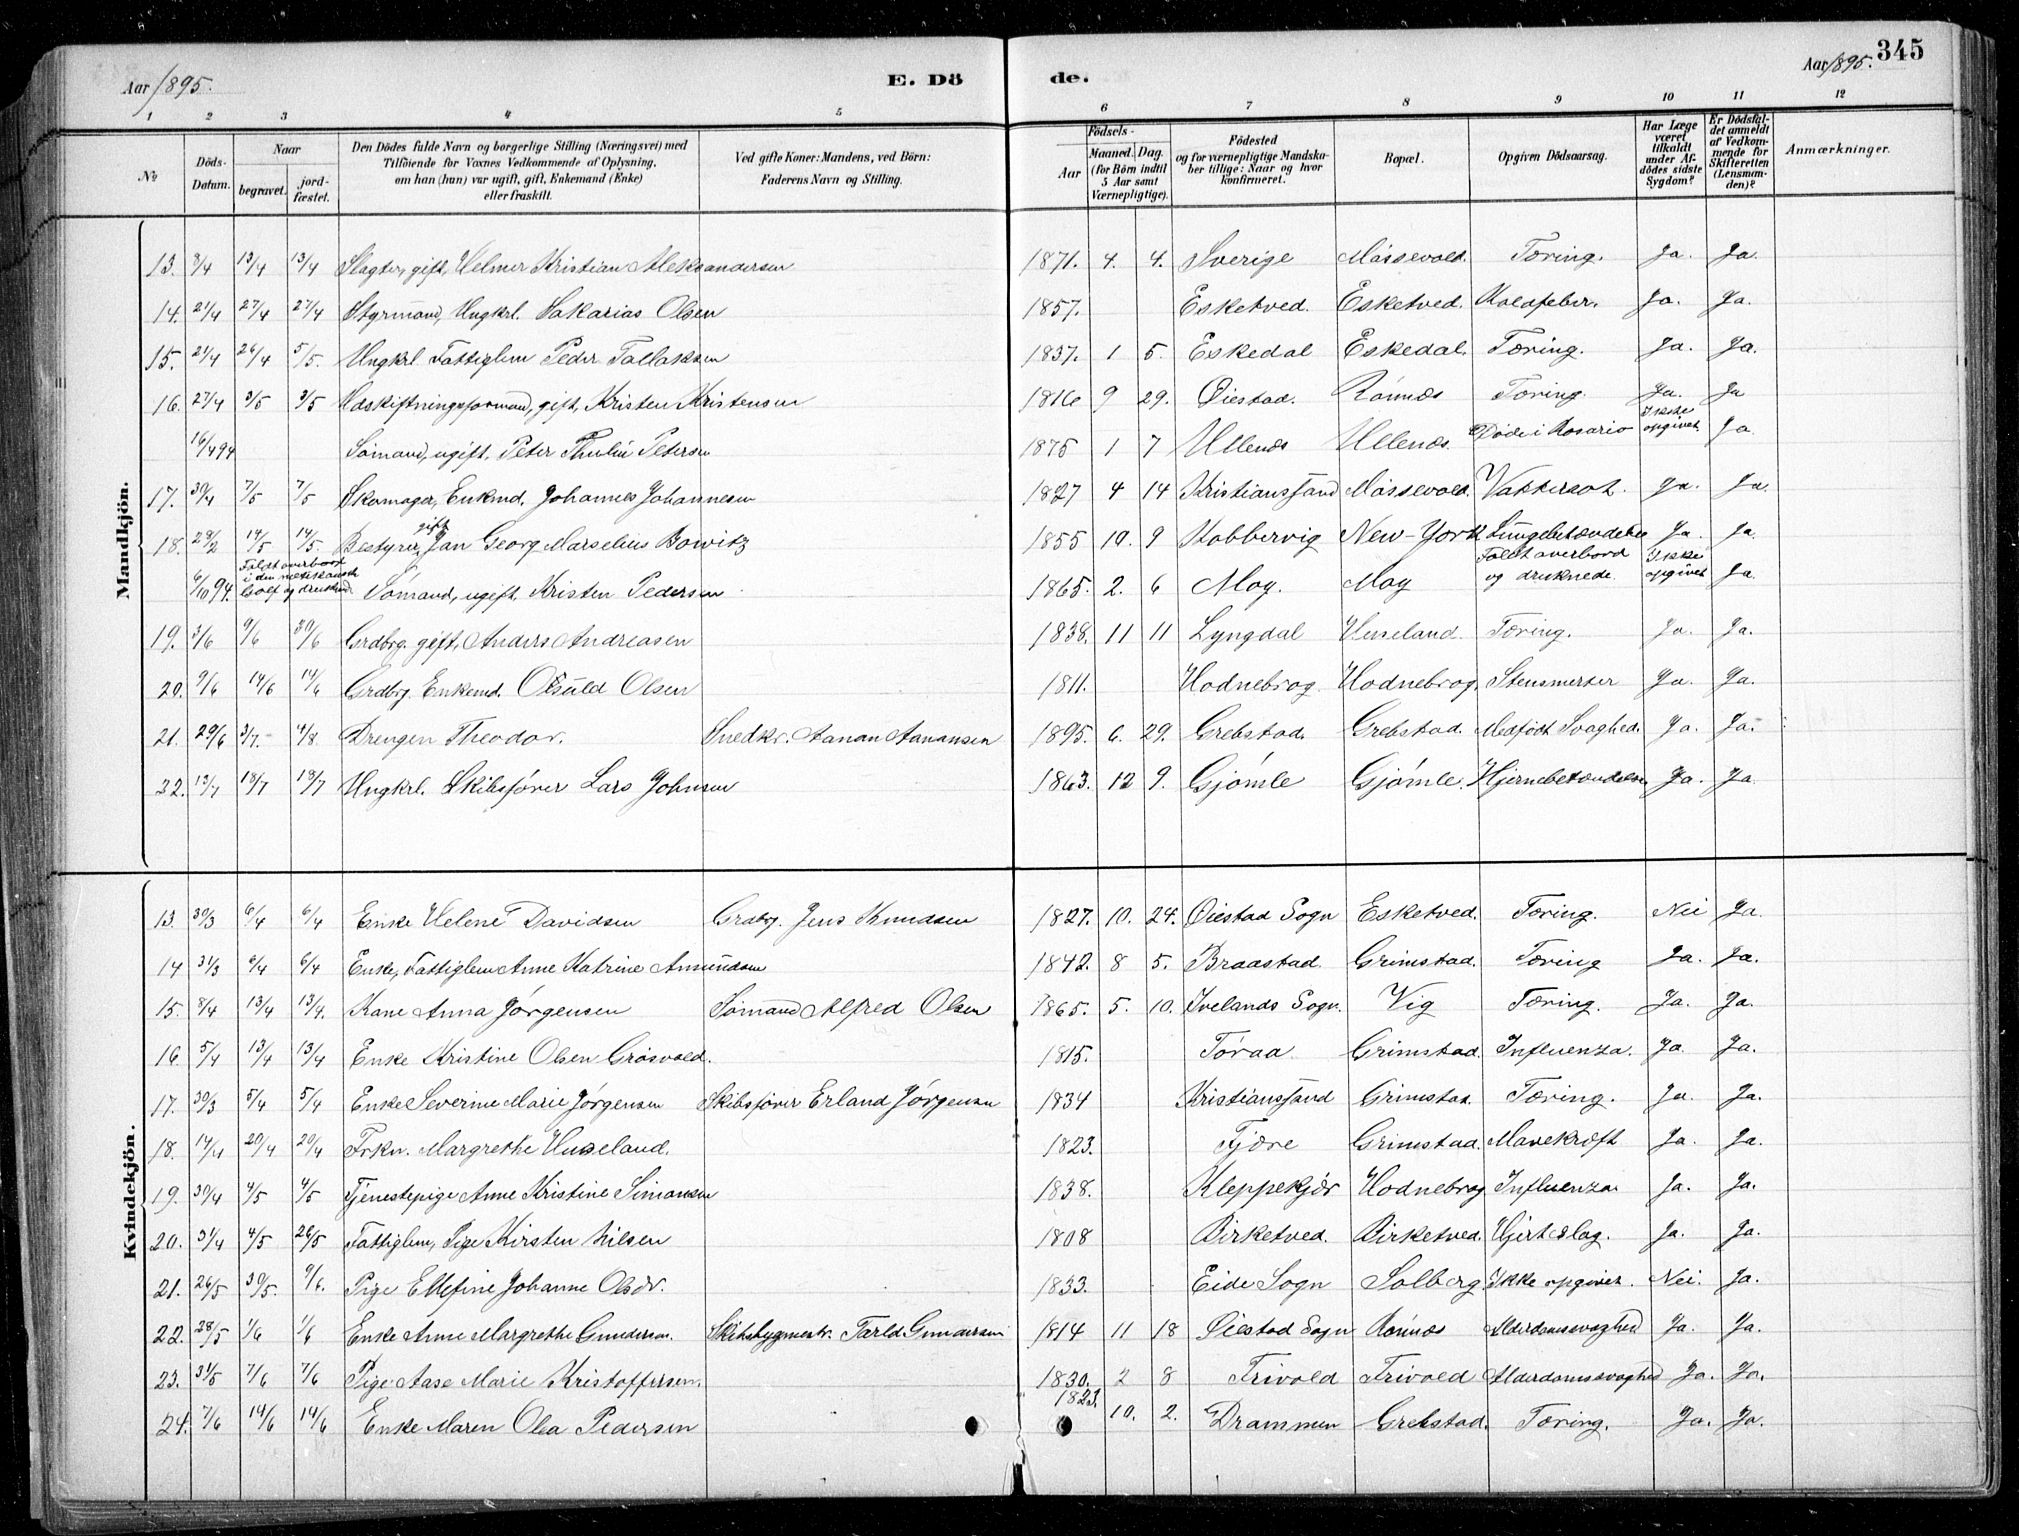 Aar 1895.
E. Döde.
Aar 1895.
345
1 2 3 4 5 6 7 8 9 10 11 12
№
Döds-Datum.
Naar
begravet.
jordfæstet.
Den Dödes fulde Navn og borgerlige Stilling (Næringsvei) med
Tilföiende for Voxnes Vedkommende af Oplysning,
om han (hun) var ugift, gift, Enkemand (Enke)
eller fraskilt.
Ved gifte Koner: Mandens, ved Börn:
Faderens Navn og Stilling.
Födsels-
Aar
Maaned. Dag.
(for Börn indtil
5 Aar samt
Værnepligtige).
Födested
og for værnepligtige Mandskaber tillige: Naar og hvor
konfirmeret.
Bopæl.
Opgiven Dödsaarsag.
Har Læge
været
tilkaldt
under Afdödes sidste
Sygdom?
Er Dödsfaldet anmeldt
af Vedkommende for
Skifteretten
(Lensmanden)?
Anmærkninger.
Mandkjön.
13. 8/4 13/4 13/4 Slagter, gift, Helmer Kristian Aleksandersen 1871. 4. 4. Sverige Móssevold. Tæring. Ja. Ja.
14. 21/4 27/4 27/4 Styrmand, Ungkrl. Sakarias Olsen 1857. Esketved. Esketved. Koldfeber. Ja. Ja.
15. 21/4 26/4 5/5. Ungkrl. Fattiglem Peder Tallaksen 1837. 1 5. Eskedal Eskedal. Tæring. Ja. Ja.
16. 27/4 3/5 3/5 Udskiftningsformand, gift, Kristen Kristensen 1816 9 29. Øiestad. Rónnes Tæring. Ja. Ja
16/4 94 Sømand, ugift, Peter Thulin Petersen 1875 1 7 Ullenes Ullenes. Døde i Rosario Ikke opgivet Ja.
17. 30/4 7/5 7/5 Skomager, Enkmd. Johannes Johannesen 1827 4 14 Kristianssand Móssevold. Vattersot. Ja. Ja.
18. 28/2 14/5 14/5. Bestyrer, gift Jan Georg Marselius Bowitz 1855 10. 9 Kobbervig New-York Lungebetændelse Ja. Ja.
6/10 94. Faldt overbord i den meksikanske Golf og druknede Sømand, ugift, Kristen Pedersen 1865. 2. 6 Moy. Moy Faldt overbord og druknede. Ikke opgivet Ja.
19. 3/6 9/6 30/6 Grdbrg. gift, Anders Andreasen 1838. 11 11 Lyngdal Huseland. Tæring. Ja. Ja.
20. 9/6 14/6 14/6 Grdbrg. Enkemd. Osuld Olsen 1811. Hodnebrog. Hodnebrog. Stensmerter Ja. Ja.
21. 29/6 3/7. 4/8. Drengen Theodor. Snedkr. Aanan Aanansen 1895. 6. 29. Grebstad. Grebstad. Medfødt Svaghed. Ja. Ja.
22. 13/7 18/7 18/7 Ungkrl. Skibsfører Lars Johnsen 1863. 12 9. Gjómle Gjómle. Hjernebetændelse Ja. Ja.
Kvindekjön.
13. 30/3 6/4 6/4 Enke Helene Davidsen Grdbrg. Jens Knudsen 1827. 10. 24. Øiestad Sogn Esketved. Tæring. Nei Ja.
14 31/3 6/4 6/4 Enke, Fattiglem Anne Katrine Amundsen 1842. 8 5. Braastad. Grimstad. Tæring Ja. Ja.
15. 8/4 13/4 13/4. Kone Anna Jørgensen Sømand Alfred Olsen 1865. 5. 10. Ivelands Sogn. Vig Tæring. Ja. Ja.
16. 5/4 13/4 13/4 Enke Kristine Olsen Grósvold. 1815. Tóraa Grimstad. Influenza. Ja. Ja.
17. 30/3 5/4 5/4 Enke Severine Marie Jørgensen Skibsfører Erland Jørgensen 1834 Kristianssand Grimstad. Tæring. Ja. Ja.
18. 14/4 20/4 20/4 Frkn. Margrethe Huseland. 1823. Fjære Grimstad. Mavekræft Ja. Ja.
19. 30/4 4/5 4/5 Tjenestepige Anne Kristine Simonsen 1838. Kleppekjær Hodnebrog Influenza Ja. Ja.
20. 31/4 4/5 26/5 Fattiglem, Pige Kirsten Nilsen 1808 Birketved. Birketved. Hjerteslag. Ja. Ja.
21. 26/5 30/5. 9/6. Pige Ellefine Johanne Olsdr. 1833. Eide Sogn Solberg. Ikke opgivet. Nei. Ja.
22. 28/5 1/6 1/6 Enke Anne Margrethe Gundersen. Skibsbygmestr. Tarld Gundersen 1814 11 18 Øiestad Sogn Rónnes Alderdomssvaghed Ja. Ja.
23. 31/5 7/6 7/6 Pige Aase Marie Kristoffersen. 1830. 2 8 Frivold Frivold Alderdomssvaghed Ja. Ja.
24. 7/6 14/6 14/6 Enke Maren Olea Pedersen 1823. 10. 2. Drammen Grebstad. Tæring. Ja. Ja.